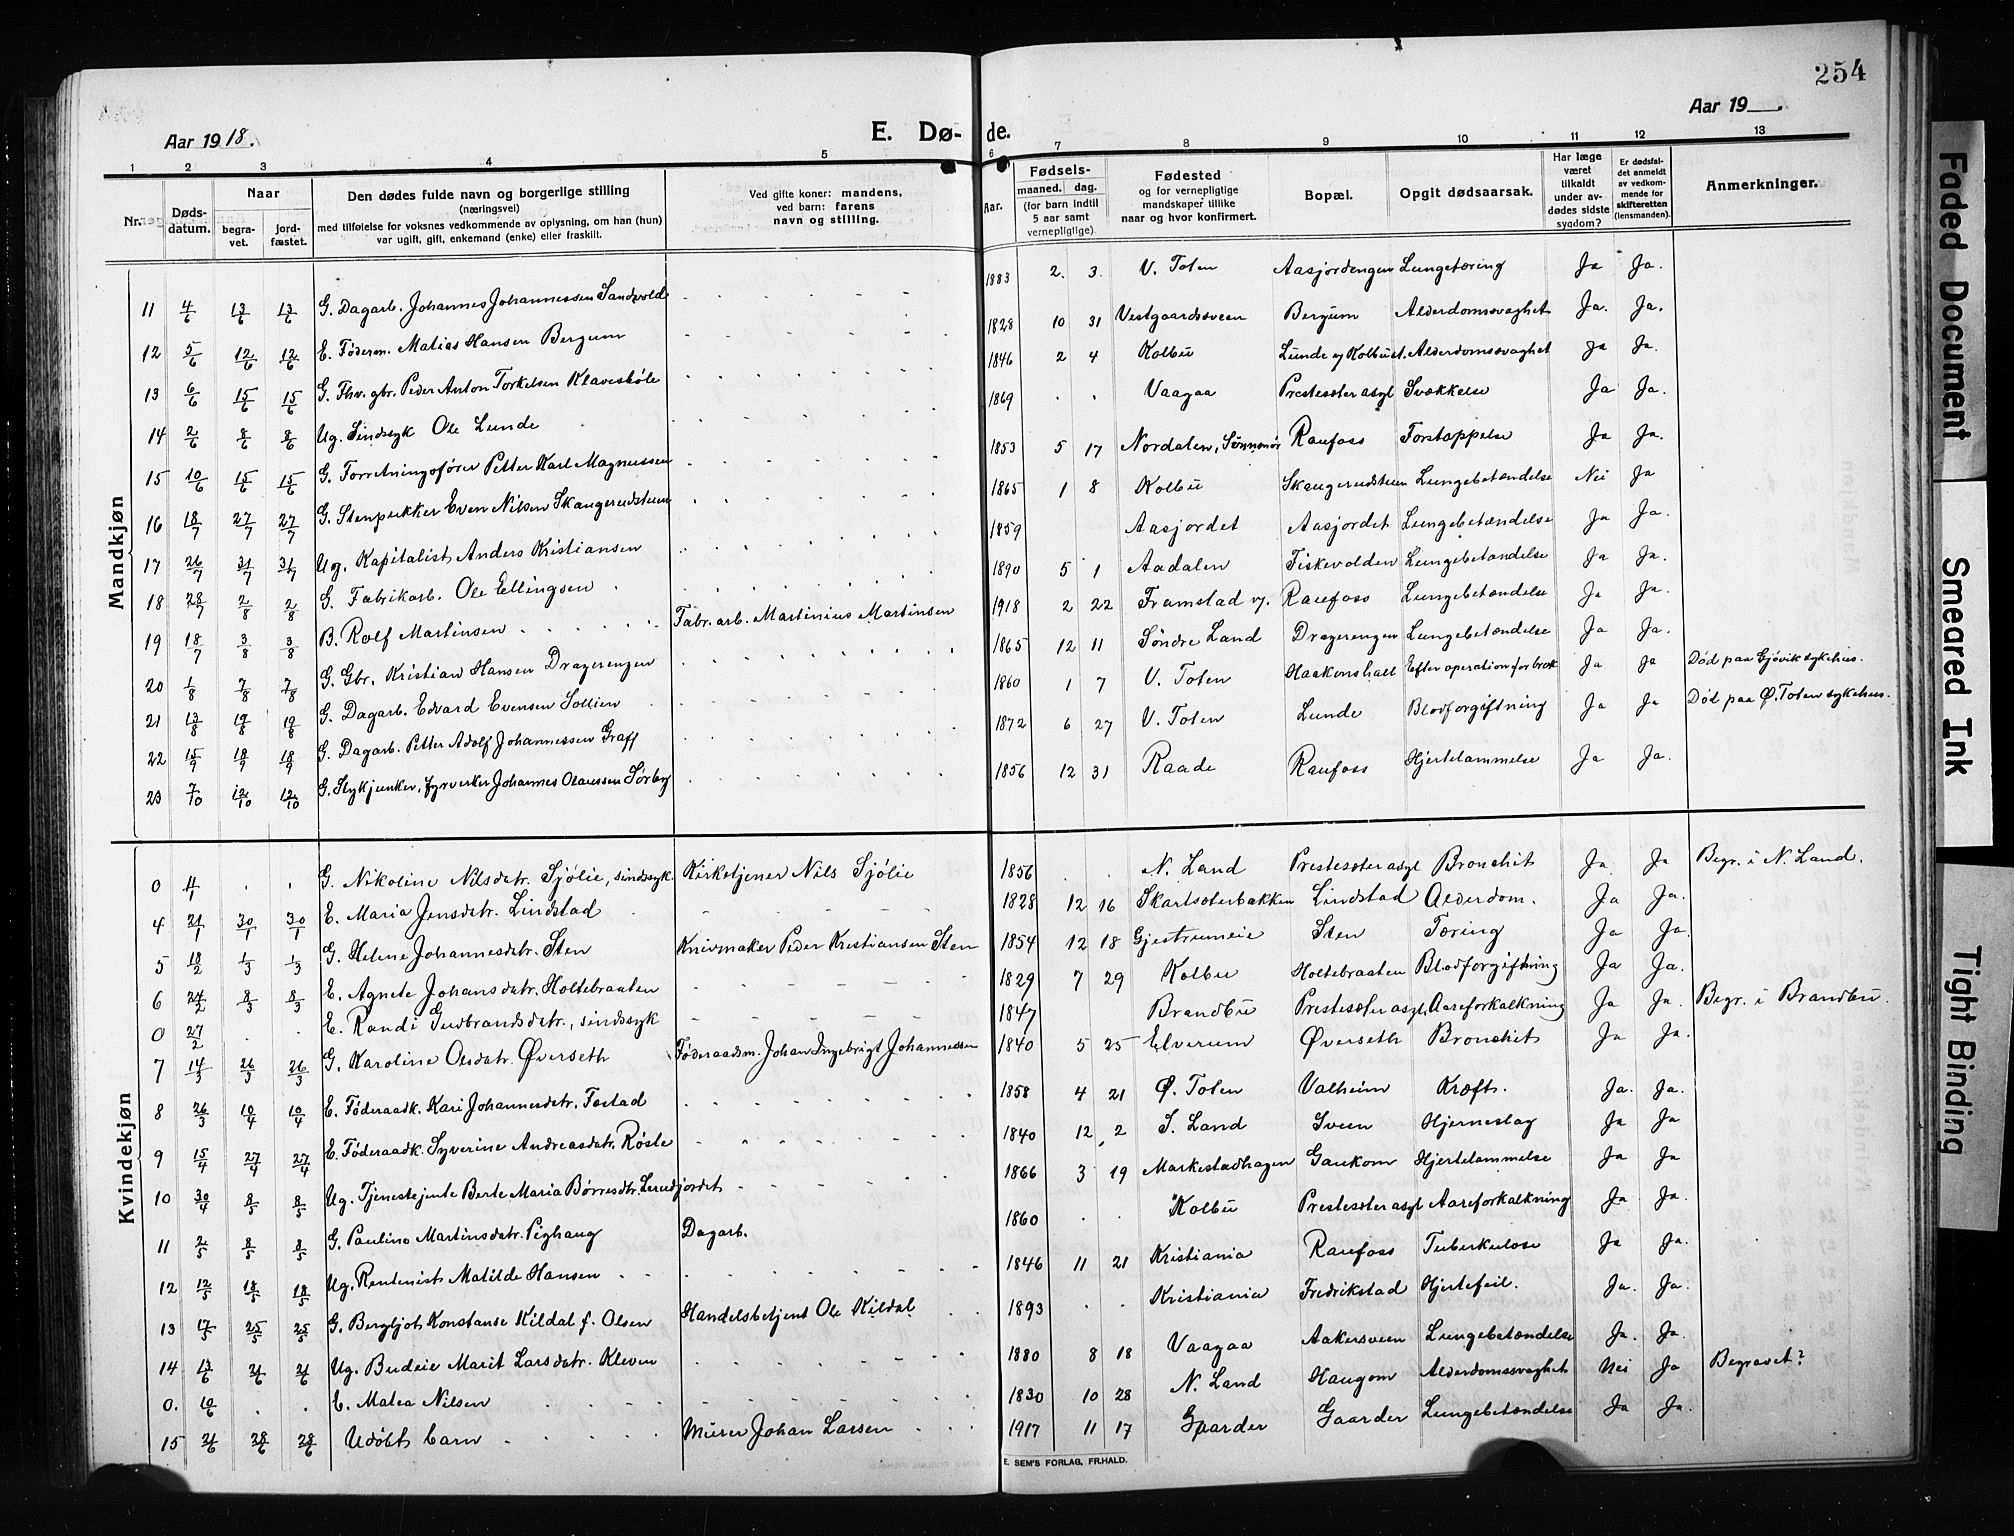 254
Aar 1918. E. Dø- de. Aar 19__.
1 2 3 4 5 6 7 8 9 10 11 12 13
Nr. Døds-datum. Naar begra-vet. jord-fæstet. Den dødes fulde navn og borgerlige stilling (næringsvei) med tilføielse for voksnes vedkommende av oplysning, om han (hun) var ugift, gift, enkemand (enke) eller fraskilt. Ved gifte koner: mandens, ved barn: farens navn og stilling. Aar. Fødsels- maaned. dag. (for barn indtil 5 aar samt vernepligtige) Fødested og for vernepligtige mandskaper tillike naar og hvor konfirmert. Bopæl. Opgit dødsaarsak. Har læge været tilkaldt under av-dødes sidste sygdom? Er dødsfal-det anmeldt av vedkom-mende for skifteretten (lensmanden). Anmerkninger.
Mandkjøn
11 4/6 13/6 13/6 G. Dagarb. Johannes Johannessen Sandvold 1883 2. 3. V. Toten Aasjordengen Lungetæring Ja Ja.
12 5/6 12/6 12/6 E. Føderm. Matias Hansen Bergum 1828 10 31 Vestgaardssveen Bergum Alderdomssvaghet Ja. Ja.
13 6/6 15/6 15/6 G. Fhv. gbr. Peder Anton Torkelsen Klavesbøle 1846 2 4 Kolbu Lunde i Kolbu st. Alderdomssvaghet Ja Ja.
14 2/6 8/6 8/6 Ug. Sindssyk Ole Lunde 1869 . . Vaagaa Prestesæter asyl Svækkelse Ja Ja.
15 10/6 15/6 15/6 G. Forretningsfører Petter Karl Magnussen 1853 5 17 Nordalen, Sønnmør Raufoss Forstoppelse Ja Ja.
16 18/7 27/7 27/7 G. Stenpukker Even Nilsen Skaugerudstuen 1865 1 8 Kolbu Skaugerudstuen Lungebetændelse Nei Ja
17 26/7 31/7 31/7 Ug. Kapitalist Anders Kristiansen 1859 Aasjordet Aasjordet Lungebetændelse Ja Ja.
18 28/7 2/8 2/8 G. Fabrikarb. Ole Ellingsen 1890 5 1 Aadalen Fiskevolden Lungebetændelse Ja Ja.
19 18/7 3/8 3/8 B. Rolf Martinsen Fabr.arb. Martinius Martinsen 1918 2 22 Framstad v. Raufoss Lungebetændelse Ja Ja
20 1/8 7/8 7/8 G. Gbr. Kristian Hansen Dragerengen 1865 12 11 Søndre Land Dragerengen Lungebetændelse Ja Ja.
21 13/8 19/8 19/8 G. Dagarb. Edvard Evensen Sollien 1860 1 7 V. Toten Haakonshall Efter operation for brok Ja Ja Død paa Gjøvik sykehus.
22 15/9 18/9 18/9 G. Dagarb. Petter Adolf Johannessen Graff 1872 6 27 V. Toten Lunde Blodforgiftning Ja Ja Død paa Ø. Toten sykehus.
23 7/10 12/10 12/10 G. Stykjunker, fyrverker Johannes Olaussen Sørby 1856 12 31 Raade Raufoss Hjertelammelse Ja Ja.
Kvindekjøn
0 4/1 . . G. Nikoline Nilsdatr. Sjølie, sindssyk. Kirketjener Nils Sjølie 1856 . . N. Land Prestesæter asyl Bronchit Ja Ja Begr. i N. Land.
4 21/1 30/1 30/1 E. Maria Jensdatr. Lindstad 1828 12 16 Skartsæterbakken Lindstad Alderdom. Ja Ja.
5 18/2 1/3 1/3 G. Helene Johannesdatr. Sten Knivmaker Peder Kristiansen Sten 1854 12 18 Gjestrumeie Sten Tæring Ja Ja.
6 24/2 8/3 8/3 E. Agnete Johansdatr. Holtebraaten 1829 7 29 Kolbu Holtebraaten Blodforgiftning Ja Ja.
0 27/2 . . E. Randi Gudbrandsdatr., sindssyk 1847 Brandbu Prestesæter asyl, Aareforkalkning Ja Ja. Begr. i Brandbu.
7 14/3 26/3 26/3 G. Karoline Olsdatr. Øverseth Føderaadsm. Johan Ingebrigt Johannessen 1840 5 25 Elverum Øverseth Bronchit Ja Ja.
8 26/3 10/4 10/4 E. Føderaadk. Kari Johannesdatr. Fostad 1858 4 21 Ø. Toten Valheim Kræft. Ja. Ja.
9 15/4 27/4 27/4 E. Føderaadk. Syverine Andreasdatr. Røste 1840 12 2 S. Land Sveen Hjerneslag Ja Ja
10 30/4 8/5 8/5 Ug. Tjenestejente Berte Maria Børresdtr. Lerudjordet 1866 3 19 Markestadhagen Gaukom Hjertelammelse Ja Ja
11 2/5 8/5 8/5 G. Pauline Martinsdatr. Pighaug Dagarb. 1860 . . Kolbu Prestesæter asyl Aareforkalkning Ja Ja
12 12/5 18/5 18/5 Ug. Rentenist Matilde Hansen 1846 11 21 Kristiania Raufoss Tuberkulose Ja Ja.
13 17/5 25/5 25/5 G. Bergljot Konstanse Kildal f. Olsen Handelsbetjent Ole Kildal 1893 . . Kristiania Fredrikstad Hjertefeil. Ja. Ja.
14 13/6 21/6 21/6 Ug. Budeie Marit Larsdatr. Kleven 1880 8 18 Vaagaa Aakersveen Lungebetændelse Ja. Ja.
0. 10/6 . . E. Matea Nilsen 1830 10 28 N. Land Haugom Alderdomssvaghet Nei Ja Begravet?
15 21/6 28/6 28/6 Udøbt barn Murer Johan Larsen 1917 11 17 Gaarder Gaarder Lungebetændelse Ja Ja.
E. SEM'S FORLAG, FR.HALD.
Faded Document
Smeared Ink
Tight Binding